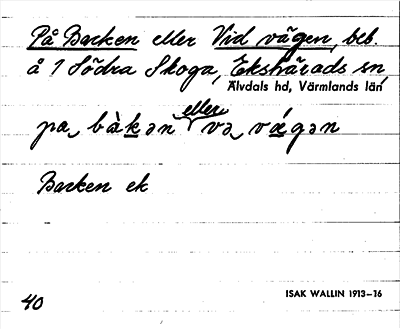 På Backen eller Vid vägen, beb.
å 1 Södra Skoga, Ekshärads sn,
Älvdals hd, Värmlands län
pa bàkən eller və vǽgən
Backen ek
40
ISAK WALLIN 1913–16